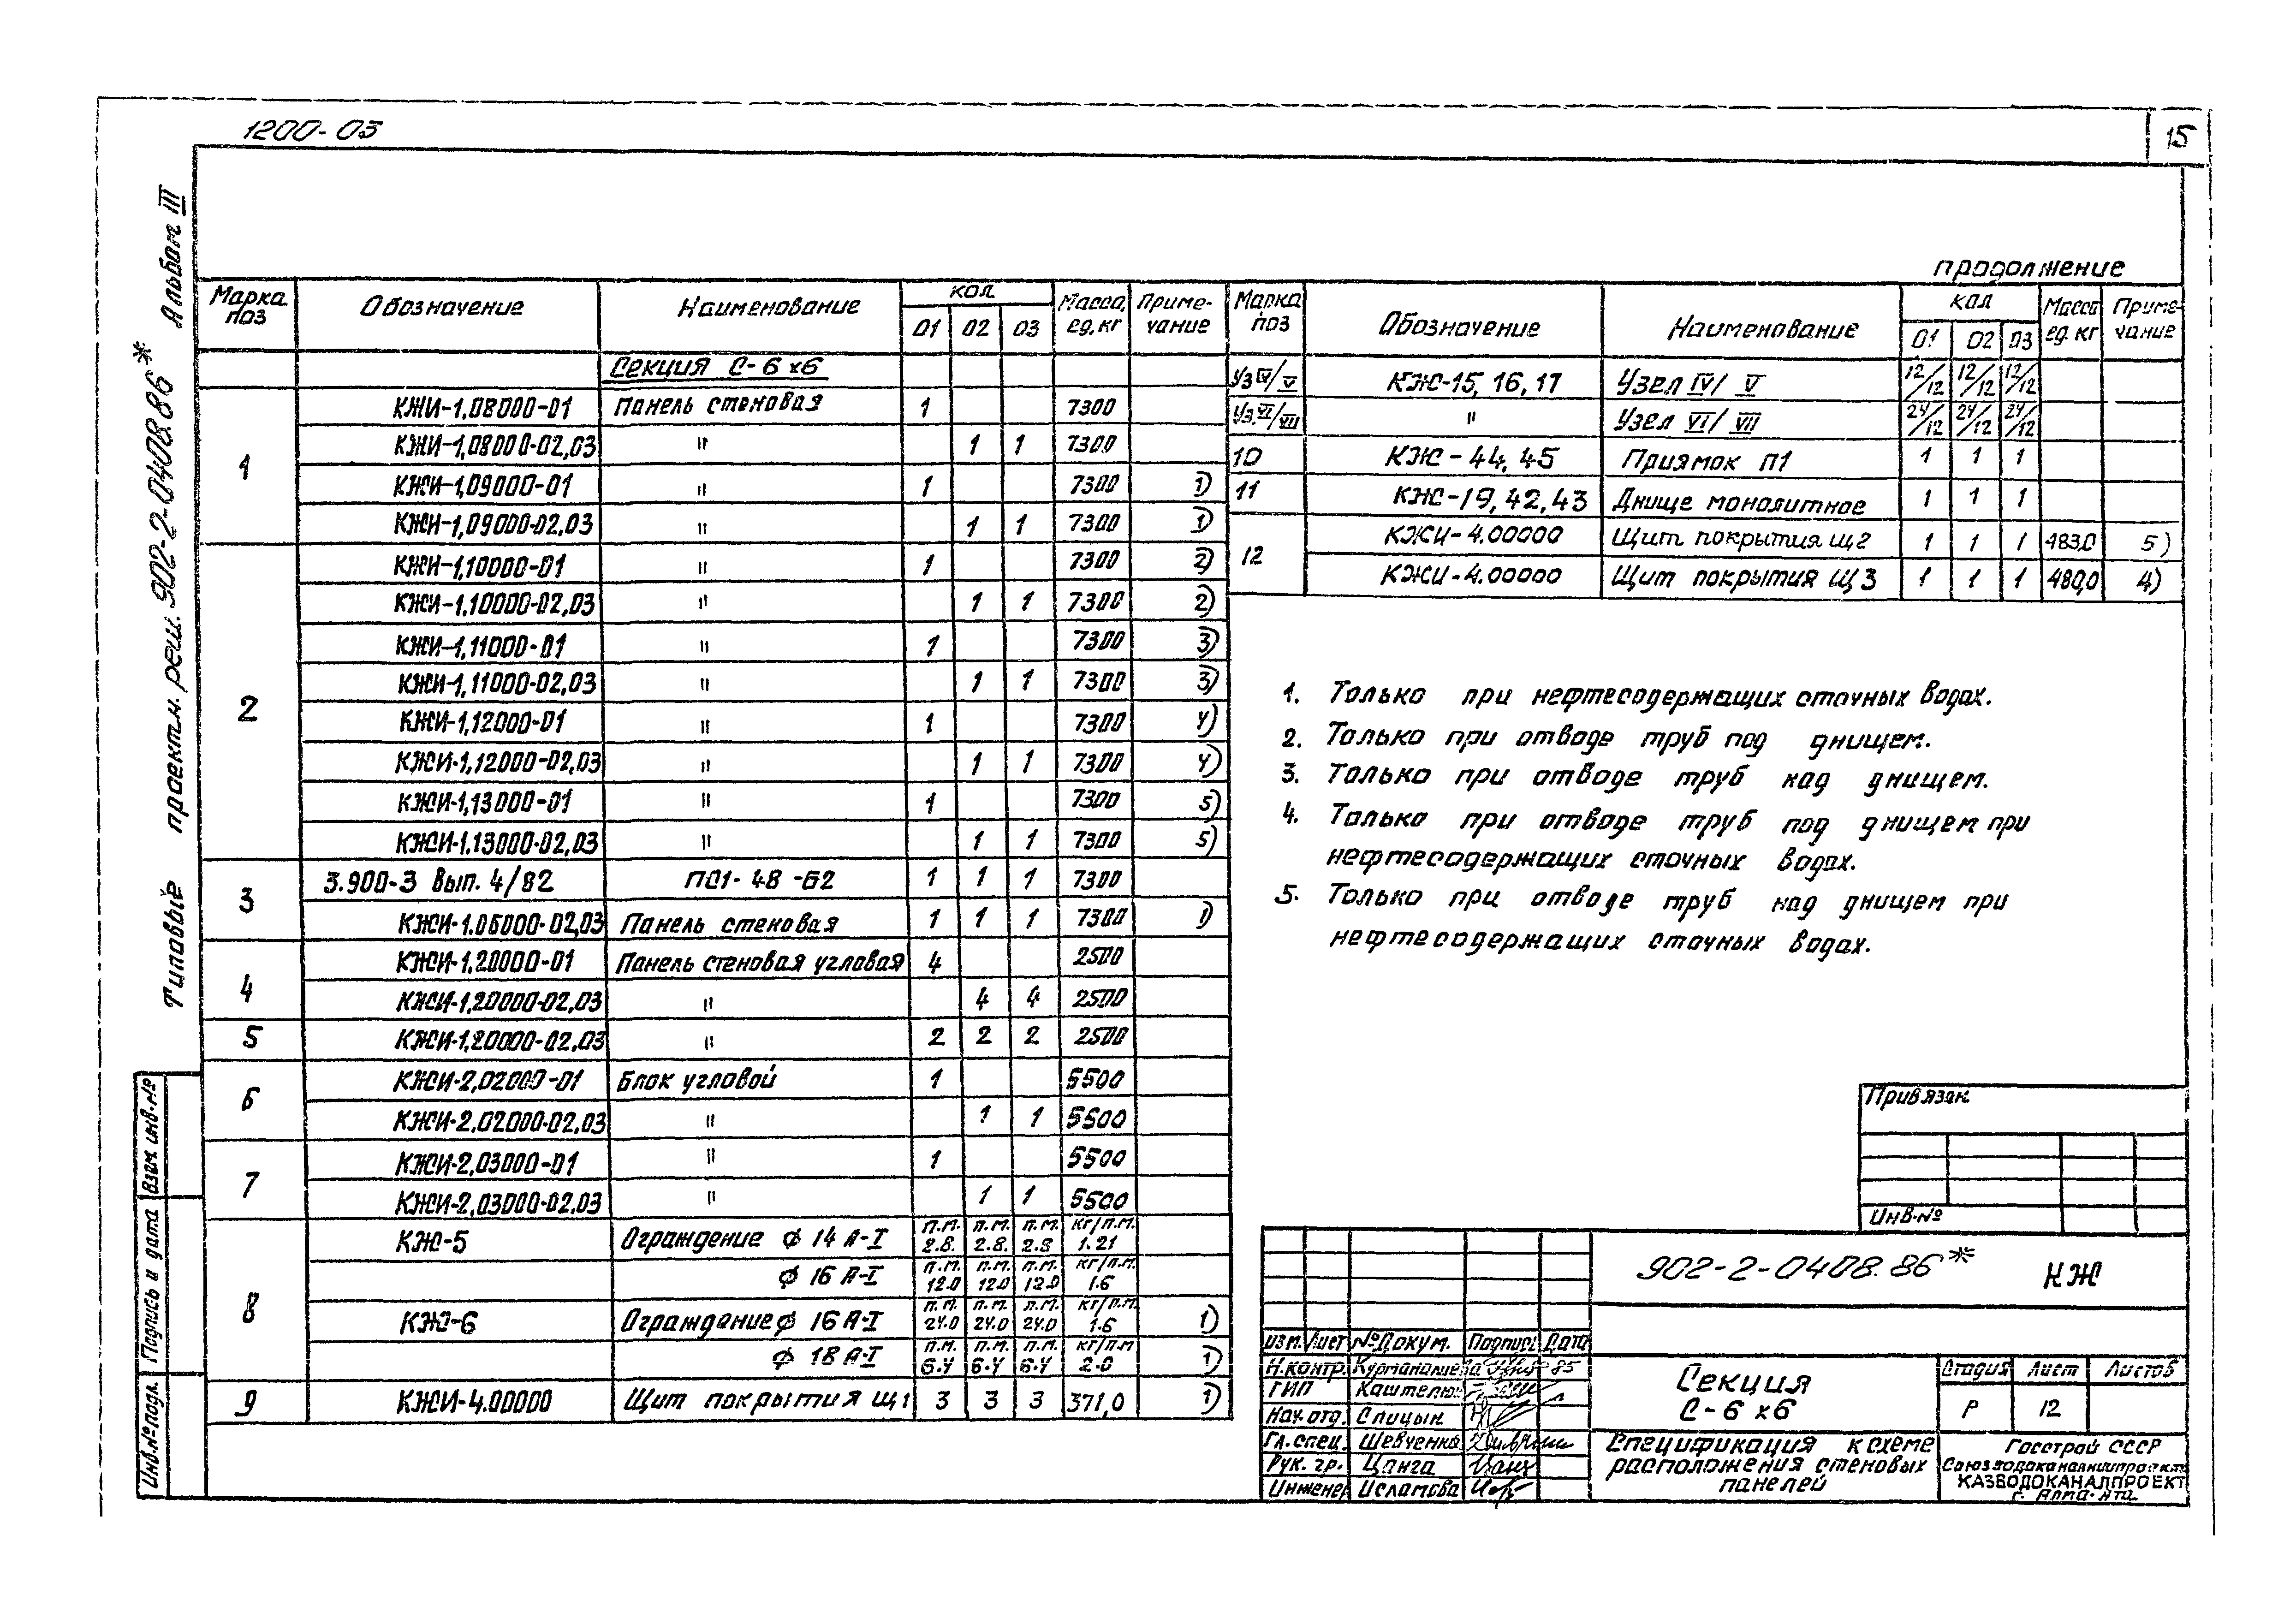 1200-03
15
Альбом III
Типовые проектн. реш. 902-2-0408.86*
продолжение
Марка поз | Обозначение | Наименование | кол 01 02 03 | Масса, ед. кг | Примечание
Секция С-6х6
1 | КЖИ-1.08000-01 | Панель стеновая | 1 | 7300
КЖИ-1.08000-02,03 | " | 1 1 | 7300
КЖИ-1.09000-01 | " | 1 | 7300 | 1)
КЖИ-1.09000-02,03 | " | 1 1 | 7300 | 1)
2 | КЖИ-1.10000-01 | " | 1 | 7300 | 2)
КЖИ-1.10000-02,03 | " | 1 1 | 7300 | 2)
КЖИ-1.11000-01 | " | 1 | 7300 | 3)
КЖИ-1.11000-02,03 | " | 1 1 | 7300 | 3)
КЖИ-1.12000-01 | " | 1 | 7300 | 4)
КЖИ-1.12000-02,03 | " | 1 1 | 7300 | 4)
КЖИ-1.13000-01 | " | 1 | 7300 | 5)
КЖИ-1.13000-02,03 | " | 1 1 | 7300 | 5)
3 | 3.900-3 Вып. 4/82 | ПС1-48-Б2 | 1 1 1 | 7300
КЖИ-1.06000-02,03 | Панель стеновая | 1 1 1 | 7300 | 1)
4 | КЖИ-1.20000-01 | Панель стеновая угловая | 4 | 2500
КЖИ-1.20000-02,03 | " | 4 4 | 2500
5 | КЖИ-1.20000-02,03 | " | 2 2 2 | 2500
6 | КЖИ-2.02000-01 | Блок угловой | 1 | 5500
КЖИ-2.02000-02,03 | " | 1 1 | 5500
7 | КЖИ-2.03000-01 | " | 1 | 5500
КЖИ-2.03000-02,03 | " | 1 1 | 5500
8 | КЖ-5 | Ограждение ϕ 14 А-I | п.м. 2.8. п.м. 2.8. п.м. 2.8 | кг/п.м. 1.21
ϕ 16 А-I | п.м. 12.0 п.м. 12.0 п.м. 12.0 | кг/п.м. 1.6
КЖ-6 | Ограждение ϕ 16 А-I | п.м. 24.0 п.м. 24.0 п.м. 24.0 | кг/п.м. 1.6 | 1)
ϕ 18 А-I | п.м. 6.4 п.м. 6.4 п.м. 6.4 | кг/п.м 2.0 | 1)
9 | КЖИ-4.00000 | Щит покрытия щ1 | 3 3 3 | 371,0 | 1)
Марка поз | Обозначение | Наименование | кол 01 02 03 | Масса ед. кг | Примечание
Уз IV/V | КЖ-15, 16, 17 | Узел IV/V | 12/12 12/12 12/12
Уз. VI/VII | " | Узел VI/VII | 24/12 24/12 24/12
10 | КЖ-44, 45 | Приямок П1 | 1 1 1
11 | КЖ-19, 42, 43 | Днище монолитное | 1 1 1
12 | КЖИ-4.00000 | Щит покрытия щ2 | 1 1 1 | 483,0 | 5)
КЖИ-4.00000 | Щит покрытия Щ3 | 1 1 1 | 480,0 | 4)
1. Только при нефтесодержащих сточных водах.
2. Только при отводе труб под днищем.
3. Только при отводе труб над днищем.
4. Только при отводе труб под днищем при
нефтесодержащих сточных водах.
5. Только при отводе труб над днищем при
нефтесодержащих сточных водах.
Привязан
Инв.№
902-2-0408.86* КЖ
Изм. Лист №Докум. Подпись Дата
Н.контр. 85
ГИП
Нач. отд. Спицын
Гл. спец. Шевченко
Рук. гр. Цанга
Инженер Исламова
Секция
С-6х6
Стадия Лист Листов
Р 12
Спецификация к схеме
расположения стеновых
панелей
Госстрой СССР
Союзводоканалниипроект
КАЗВОДОКАНАЛПРОЕКТ
г. Алма-Ата
Взам. инв.№
Подпись и дата
Инв.№подл.